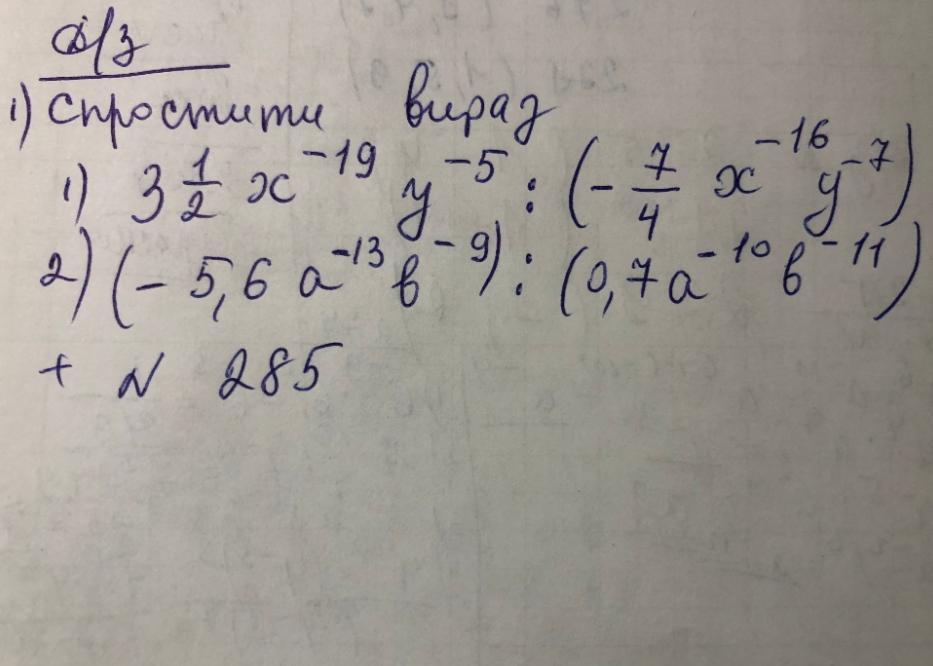 д/з
1) Спростити вираз
1) 3 1/2 x^-19 y^-5 : (- 7/4 x^-16 y^-7)
2) (- 5,6 a^-13 b^-9) : (0,7a^-10 b^-11)
+ N 285